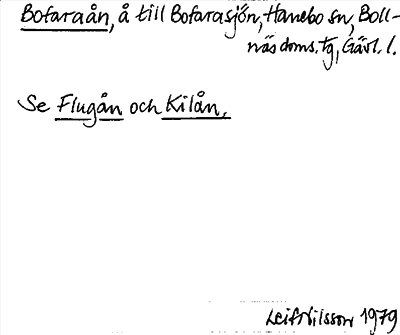 Bofaraån, å till Bofarasjön, Hanebo sn, Boll-
näs doms. tg, Gävl. l.
Se Flugån och Kilån,
Leif Nilsson 1979